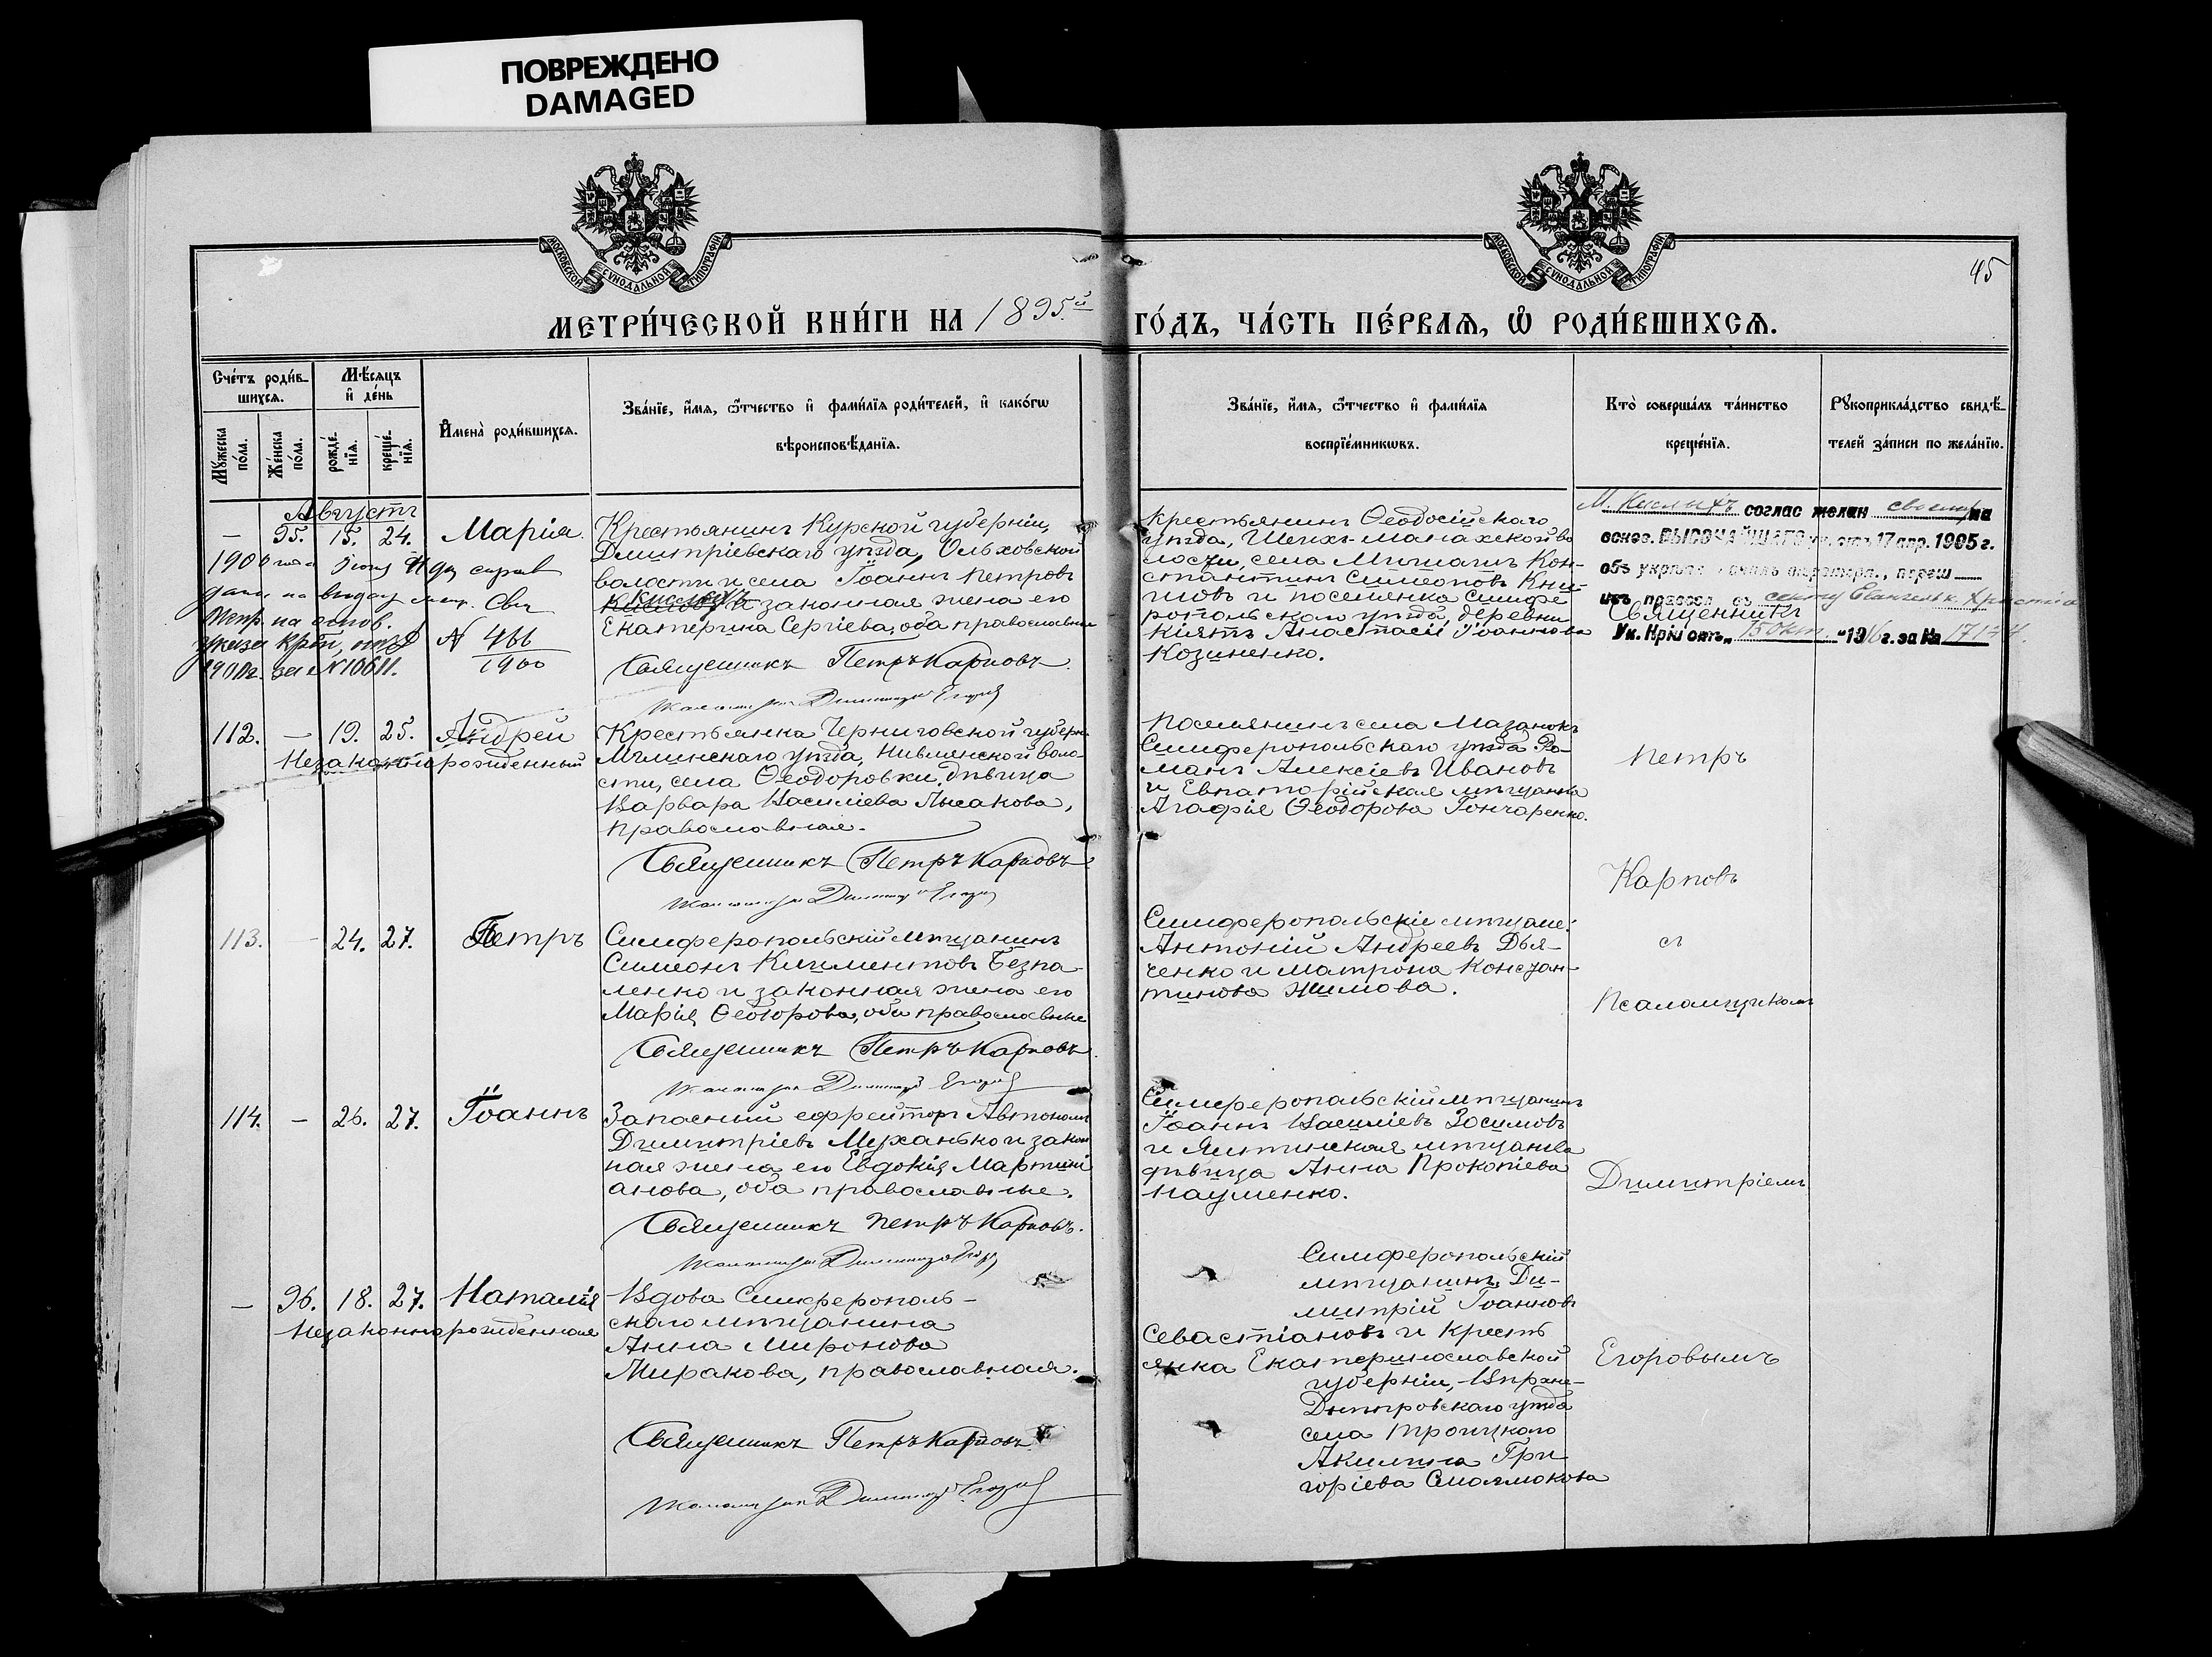 ПОВРЕЖДЕНО
DAMAGED
МОСКОВСКОЙ СѴНОДАЛЬНОЙ ТИПОГРАФІИ
МОСКОВСКОЙ СѴНОДАЛЬНОЙ ТИПОГРАФІИ
45
МЕТРИ́ЧЕСКОЙ КНИ́ГИ НА 1895й ГО́ДЪ, ЧА́СТЬ ПЕ́РВАѦ, Ѽ РОДИ́ВШИХСѦ.
Сче́тъ роди́в-
шихсѧ.
Мѣ́сѧцъ
и҆ де́нь
Мꙋ́жеска по́ла.
Же́нска по́ла.
рожде́-нїѧ.
креще́-нїѧ.
И҆мена̀ роди́вшихсѧ.
Зва́нїе, и҆́мѧ, ѻ҆́тчество и҆ фами́лїѧ роди́телей, и҆ како́гѡ
вѣроисповѣ́данїѧ.
Зва́нїе, и҆́мѧ, ѻ҆́тчество и҆ фами́лїѧ
воспрїе́мникѡвъ.
Кто̀ соверша́лъ та́инство
креще́нїѧ.
Рꙋкоприкла́дство свидѣ́-
телей за́писи по жела́нїю.
Августъ
— 95. 15. 24. Марія.
Крестьянинъ Курской губерніи,
Димитріевскаго уѣзда, Ольховской
волости и села Іоаннъ Петровъ
Кислыхъ и законная жена его
Екатерина Сергіева, оба православные
Священникъ Петръ Карповъ.
Псаломщикъ Димитрій Егоровъ
1900 года
на выдачу метр. Свид.
указа
1900 г. за N 10611.
N 466
1900
Крестьянинъ Ѳеодосійскаго
уѣзда, Шейхъ-Манахской во
лости, села Мишани Кон-
стантинъ Симеоновъ
и поселянка Симфе
ропольскаго уѣзда, деревни
Киятъ Анастасія Іоаннова
Козиненко.
М. Кислыхъ соглас желан своему на
основ. ВЫСОЧАЙШАГО ук. отъ 17 апр. 1905 г.
объ укрѣпл. началъ вѣротерп., переш
изъ правосл. въ секту Евангельск. Христіа
Священникъ
Ук. Крім. отъ „15 окт. " 1916 г. за № 17174
112. — 19. 25. Андрей
Незаконнорожденный
Крестьянка Черниговской губерн.
Мглинскаго уѣзда, Нивлянской воло-
сти, села Ѳеодоровки, дѣвица
Варвара Василіева Лысакова,
православная.
Священникъ Петръ Карповъ
Псаломщикъ Димитрій Егоровъ
Поселянинъ села Мазанокъ
Симферопольскаго уѣзда Ро-
манъ Алексіевъ Ивановъ
и Евпаторійская мѣщанка
Агафія Ѳеодорова Гончаренко.
Петръ
Карповъ
113. — 24. 27. Петръ
Симферопольскій мѣщанинъ
Симеонъ Климентовъ Безпа-
ленко и законная жена его
Марія Ѳеодорова, оба православные
Священникъ Петръ Карповъ.
Псаломщикъ Димитрій Егоровъ
Симферопольскіе мѣщане:
Антоній Андреевъ Дья-
ченко и Матрона Констан-
тинова Жилова.
съ
Псаломщикомъ
114. — 26. 27. Іоаннъ
Запасный ефрейторъ Автономъ
Димитріевъ Муханько и закон
ная жена его Евдокія Мартині
анова, оба православные.
Священникъ Петръ Карповъ.
Псаломщикъ Димитрій Егоровъ
Симферопольскій мѣщанинъ
Іоаннъ Василіевъ Зосимовъ
и Ялтинская мѣщанка
дѣвица Анна Прокопіева
Науменко.
Димитріемъ
— 96. 18. 27. Наталія
Незаконнорожденная
Вдова Симферополь-
скаго мѣщанина
Анна Миронова
Миракова, православная.
Священникъ Петръ Карповъ
Псаломщикъ Димитрій Егоровъ
Симферопольскій
мѣщанинъ Ди-
митрій Іоанновъ
Севастіановъ и кресть
янка Екатеринославской
губерніи, Верхне-
Днѣпровскаго уѣзда
села Троицкаго
Акилина Гри
горіева
Егоровымъ